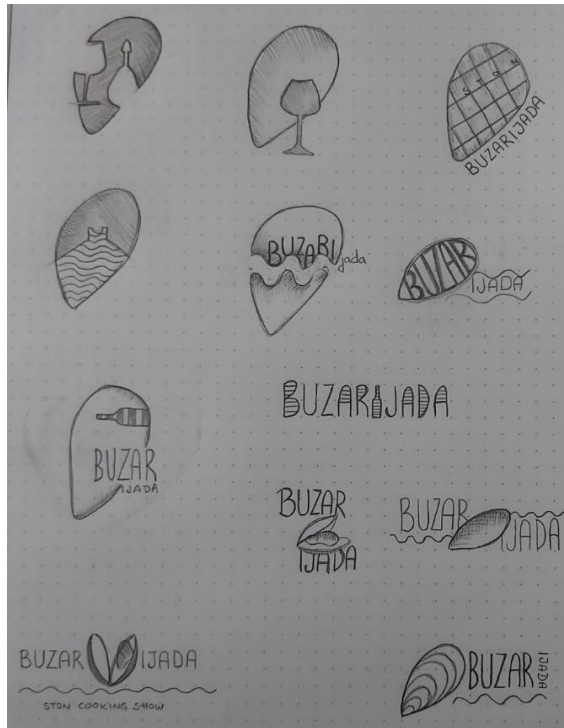 BUZARIJADA
BUZARI
jada
BUZAR
IJADA
BUZARIJADA
BUZAR
IJADA
BUZAR
IJADA
BUZAR
IJADA
BUZAR IJADA
STON COOKING SHOW
BUZAR
IJADA